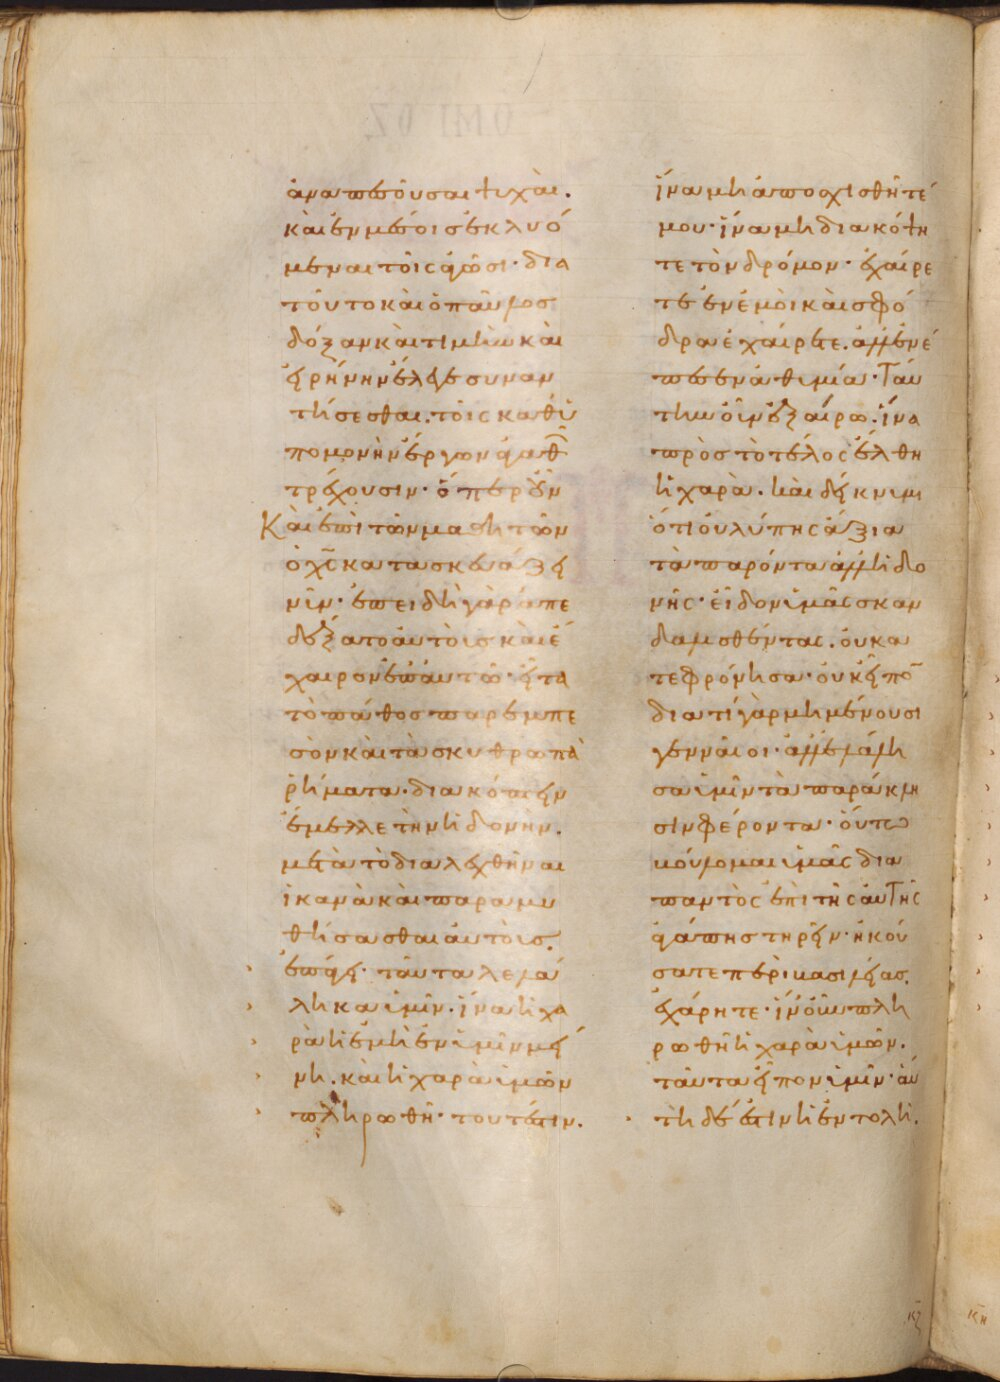 ἀναπεσοῦσαι ψυχὰι.
κὰι ἐν μέσοις ἐκλυό
μεναι τοῖς ἀγῶσι· δια
τοῦτο κὰι ὁ παῦλος
δόξαν κὰι τιμὴν κὰι
εἰρήνην ἔλεγε συναν
τήσεσθαι. τοῖς καθ ὑ
πομονὴν ἔργων ἀγαθ
τρέχουσιν· ὅπερ οὖν
Κὰι ἐπὶ τῶν μαθητῶν
ὁ χς κατασκευάζει
νῦν· ἐπειδὴ γὰρ ἀπε
δέξατο ἀυτοὺς κὰι ἔ
χαιρον ἐπ ἀυτῶ· εἶτα
τὸ πάθος παρεμπε
σὸν κὰι τὰ σκυθρωπὰ
ῥήματα· διακόπτειν
ἔμελλε τὴν ἡδονὴν.
μετὰ τὸ διαλεχθῆναι
ἱκανὰ κὰι παραμυ
θήσασθαι ἀυτοὺς.
ἐπάγει· ταῦτα λελά
ληκα ὑμῖν· ἵνα ἡ χα
ρὰ ἡ ἐμὴ ἐν ὑμῖν μεί
νη. κὰι ἡ χαρὰ ὑμῶν
πληρωθῆ· τουτέστιν.
ἵνα μὴ ἀποσχισθῆτέ
μου· ἵνα μὴ διακόψη
τε τὸν δρόμον· ἐχαίρε
τε ἐν ἐμοὶ κὰι σφό
δρα ἐχαίρετε. ἀλλ ἐνέ
πεσεν ἀθυμία· Ταύ
την οὖν ἐξαίρω. ἵνα
πρὸς τὸ τέλος ἔλθη
ἡ χαρὰ. κὰι δείκνυσι
ὅτι οὐ λύπης ἄξια
τὰ παρόντα ἀλλ ἡδο
νῆς· εἶδον ὑμᾶς σκαν
δαλισθέντας. οὐ κα
τεφρόνησα· οὐκ εἶπον
διατί γὰρ μὴ μένουσι
γενναῖοι· ἀλλ ἐλάλη
σα ὑμῖν τὰ παράκλη
σιν φέροντα· οὕτω
κὀυλομαι ὑμᾶς δια
παντὸς ἐπὶ τῆς αὐτῆς
ἀγάπης τηρεῖν· ἠκού
σατε περὶ βασιλείας.
ἐχάρητε· ἵν οὖν πλη
ρωθῆ ἡ χαρὰ ὑμῶν.
ταῦτα εἶπον ὑμῖν· ἀυ
τὴ δέ ἐστιν ἡ ἐντολὴ.
κζ
κη